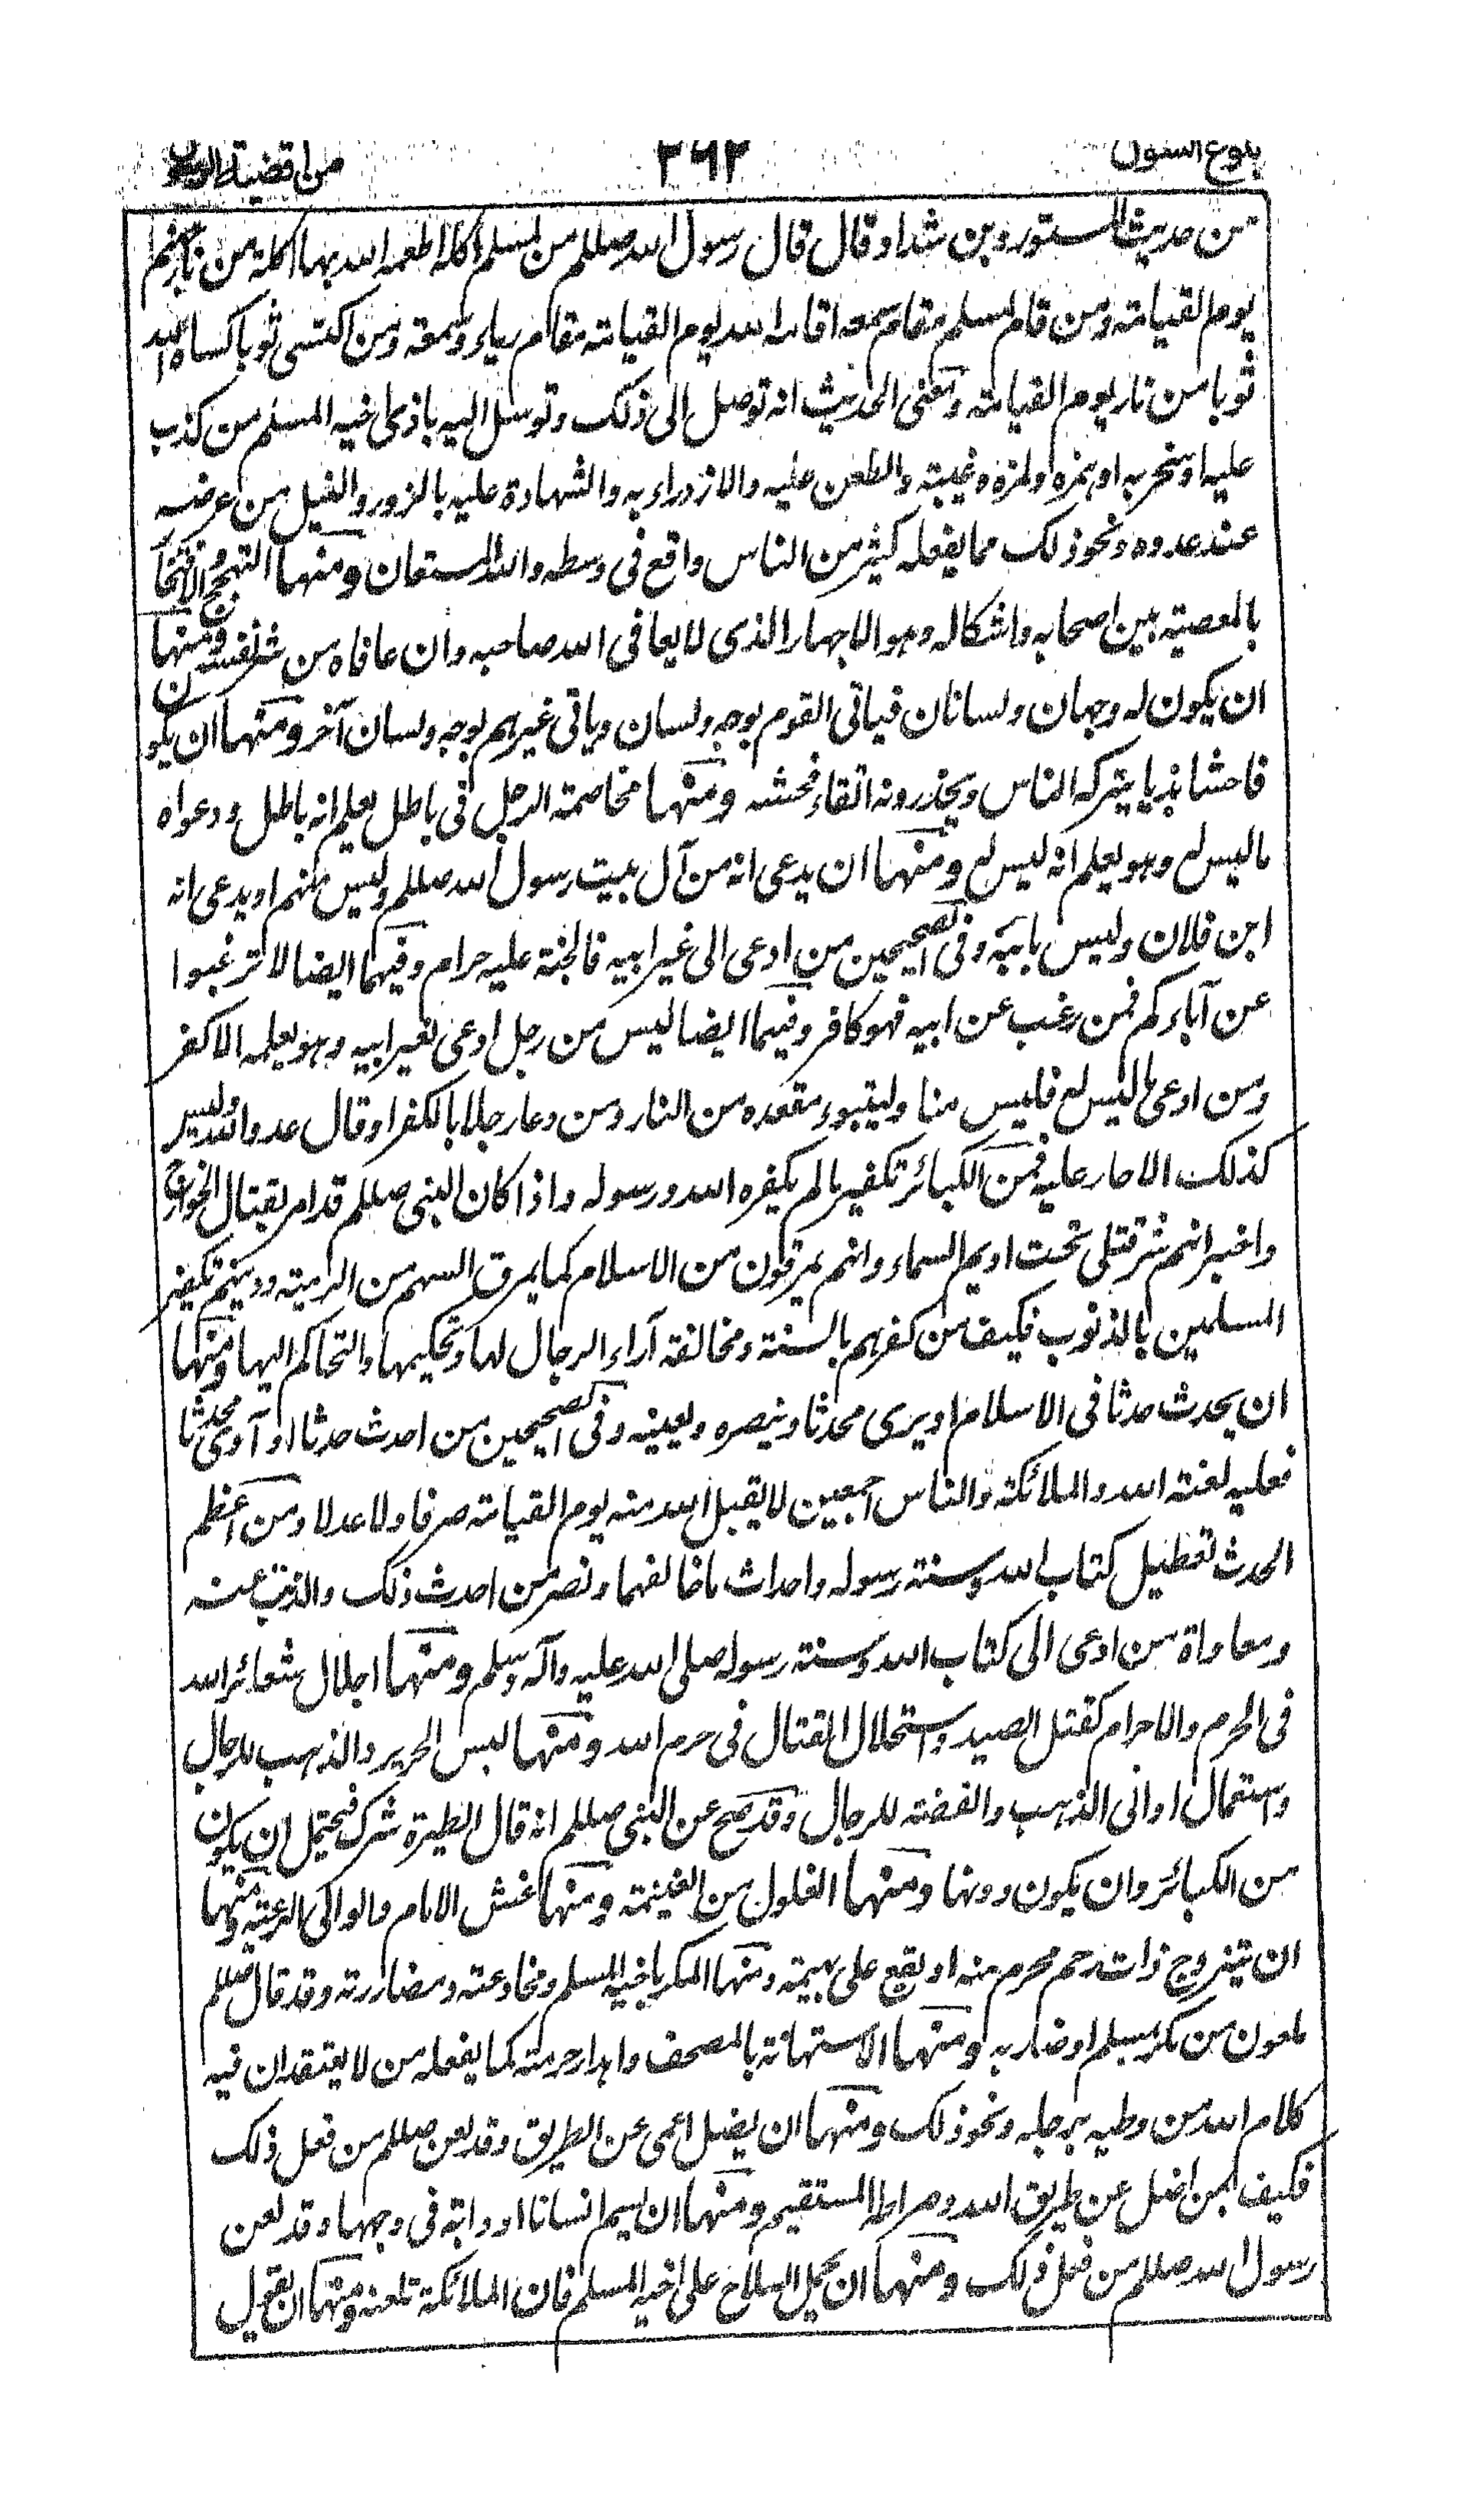 بلوغ السول ٣٦٢ من اقضية الرسول
من حديث المستورد بن شداد قال قال رسول الله صللم من اكل بمسلم اكلة اطعمه الله بها اكلة من نار جهنم
يوم القيامة ومن قام بمسلم مقام سمعة اقامه الله يوم القيامة مقام رياء وسمعة ومن اكتسى ثوبا كساه الله
ثوبا من نار يوم القيامة ومعنى الحديث انه توصل الى ذلك وتوسل اليه باذى اخيه المسلم من كذب
عليه او سخر به او همزه ولمزه وغيبته والطعن عليه والازدراء به والشهادة عليه بالزور والنيل من عرضه
عند عدوه ونحو ذلك مما يفعله كثير من الناس واقع فى وسطه والله المستعان ومنها التبجح والافتخار
بالمعصية بين اصحابه واشكاله وهو الاجهار الذى لا يعافى الله صاحبه وان عافاه من شر نفسه ومنها
ان يكون له وجهان ولسانان فياتى القوم بوجه ولسان وياتى غيرهم بوجه ولسان آخر ومنها ان يكون
فاحشا بذيا يتركه الناس ويحذرونه اتقاء فحشه ومنها مخاصمة الرجل فى باطل يعلم انه باطل ودعواه
ما ليس له وهو يعلم انه ليس له ومنها ان يدعى انه من آل بيت رسول الله صللم وليس منهم او يدعى انه
ابن فلان وليس بابنه وفى الصحيحين من ادعى الى غير ابيه فالجنة عليه حرام وفيهما ايضا لا ترغبوا
عن آباءكم فمن رغب عن ابيه فهو كافر وفيهما ايضا ليس من رجل ادعى لغير ابيه وهو يعلمه الا كفر
ومن ادعى ما ليس له فليس منا وليتبوء مقعده من النار ومن دعا رجلا بالكفر او قال عدو الله وليس
كذلك الا حار عليه فمن الكبائر تكفير ما لم يكفره الله ورسوله واذا كان النبى صللم قد امر بقتال الخوارج
واخبر انهم شر قتلى تحت اديم السماء وانهم يمرقون من الاسلام كما يمرق السهم من الرمية ودينهم تكفير
المسلمين بالذنوب فكيف من كفرهم بالسنة ومخالفة آراء الرجال لها وتحكيمها والتحاكم اليها ومنها
ان يحدث حدثا فى الاسلام او يرى محدثا وينصره ويعينه وفى الصحيحين من احدث حدثا او آوى محدثا
فعليه لعنة الله والملائكة والناس اجمعين لا يقبل الله منه يوم القيامة صرفا ولا عدلا ومن اعظم
الحدث تعطيل كتاب الله وسنة رسوله واحداث ما خالفهما ونصر من احدث ذلك والذب عنه
ومعاداة من ادعى الى كتاب الله وسنة رسوله صلى الله عليه وآله وسلم ومنها احلال شعائر الله
فى الحرم والاحرام كقتل الصيد واستحلال القتال فى حرم الله ومنها لبس الحرير والذهب للرجال
واستعمال اوانى الذهب والفضة للرجال وقد صح عن النبى صللم انه قال الطيرة شرك فيحتمل ان يكون
من الكبائر وان يكون دونها ومنها الغلول من الغنيمة ومنها غش الامام والوالى الرعية ومنها
ان يتزوج ذات رحم محرم منه او يقع على بهيمة ومنها المكر باخيه المسلم ومخادعته ومضاررته وقد قال صللم
ملعون من مكر بمسلم او ضار به ومنها الاستهانة بالمصحف واهدار حرمته كما يفعله من لا يعتقد ان فيه
كلام الله من وطيه برجله ونحو ذلك ومنها ان يضل اعمى عن الطريق وقد لعن صللم من فعل ذلك
فكيف بمن اضل عن طريق الله وصراطه المستقيم ومنها ان يسم انسانا او دابة فى وجهها وقد لعن
رسول الله صللم من فعل ذلك ومنها ان يحمل السلاح على اخيه المسلم فان الملائكة تلعنه ومنها ان يقول